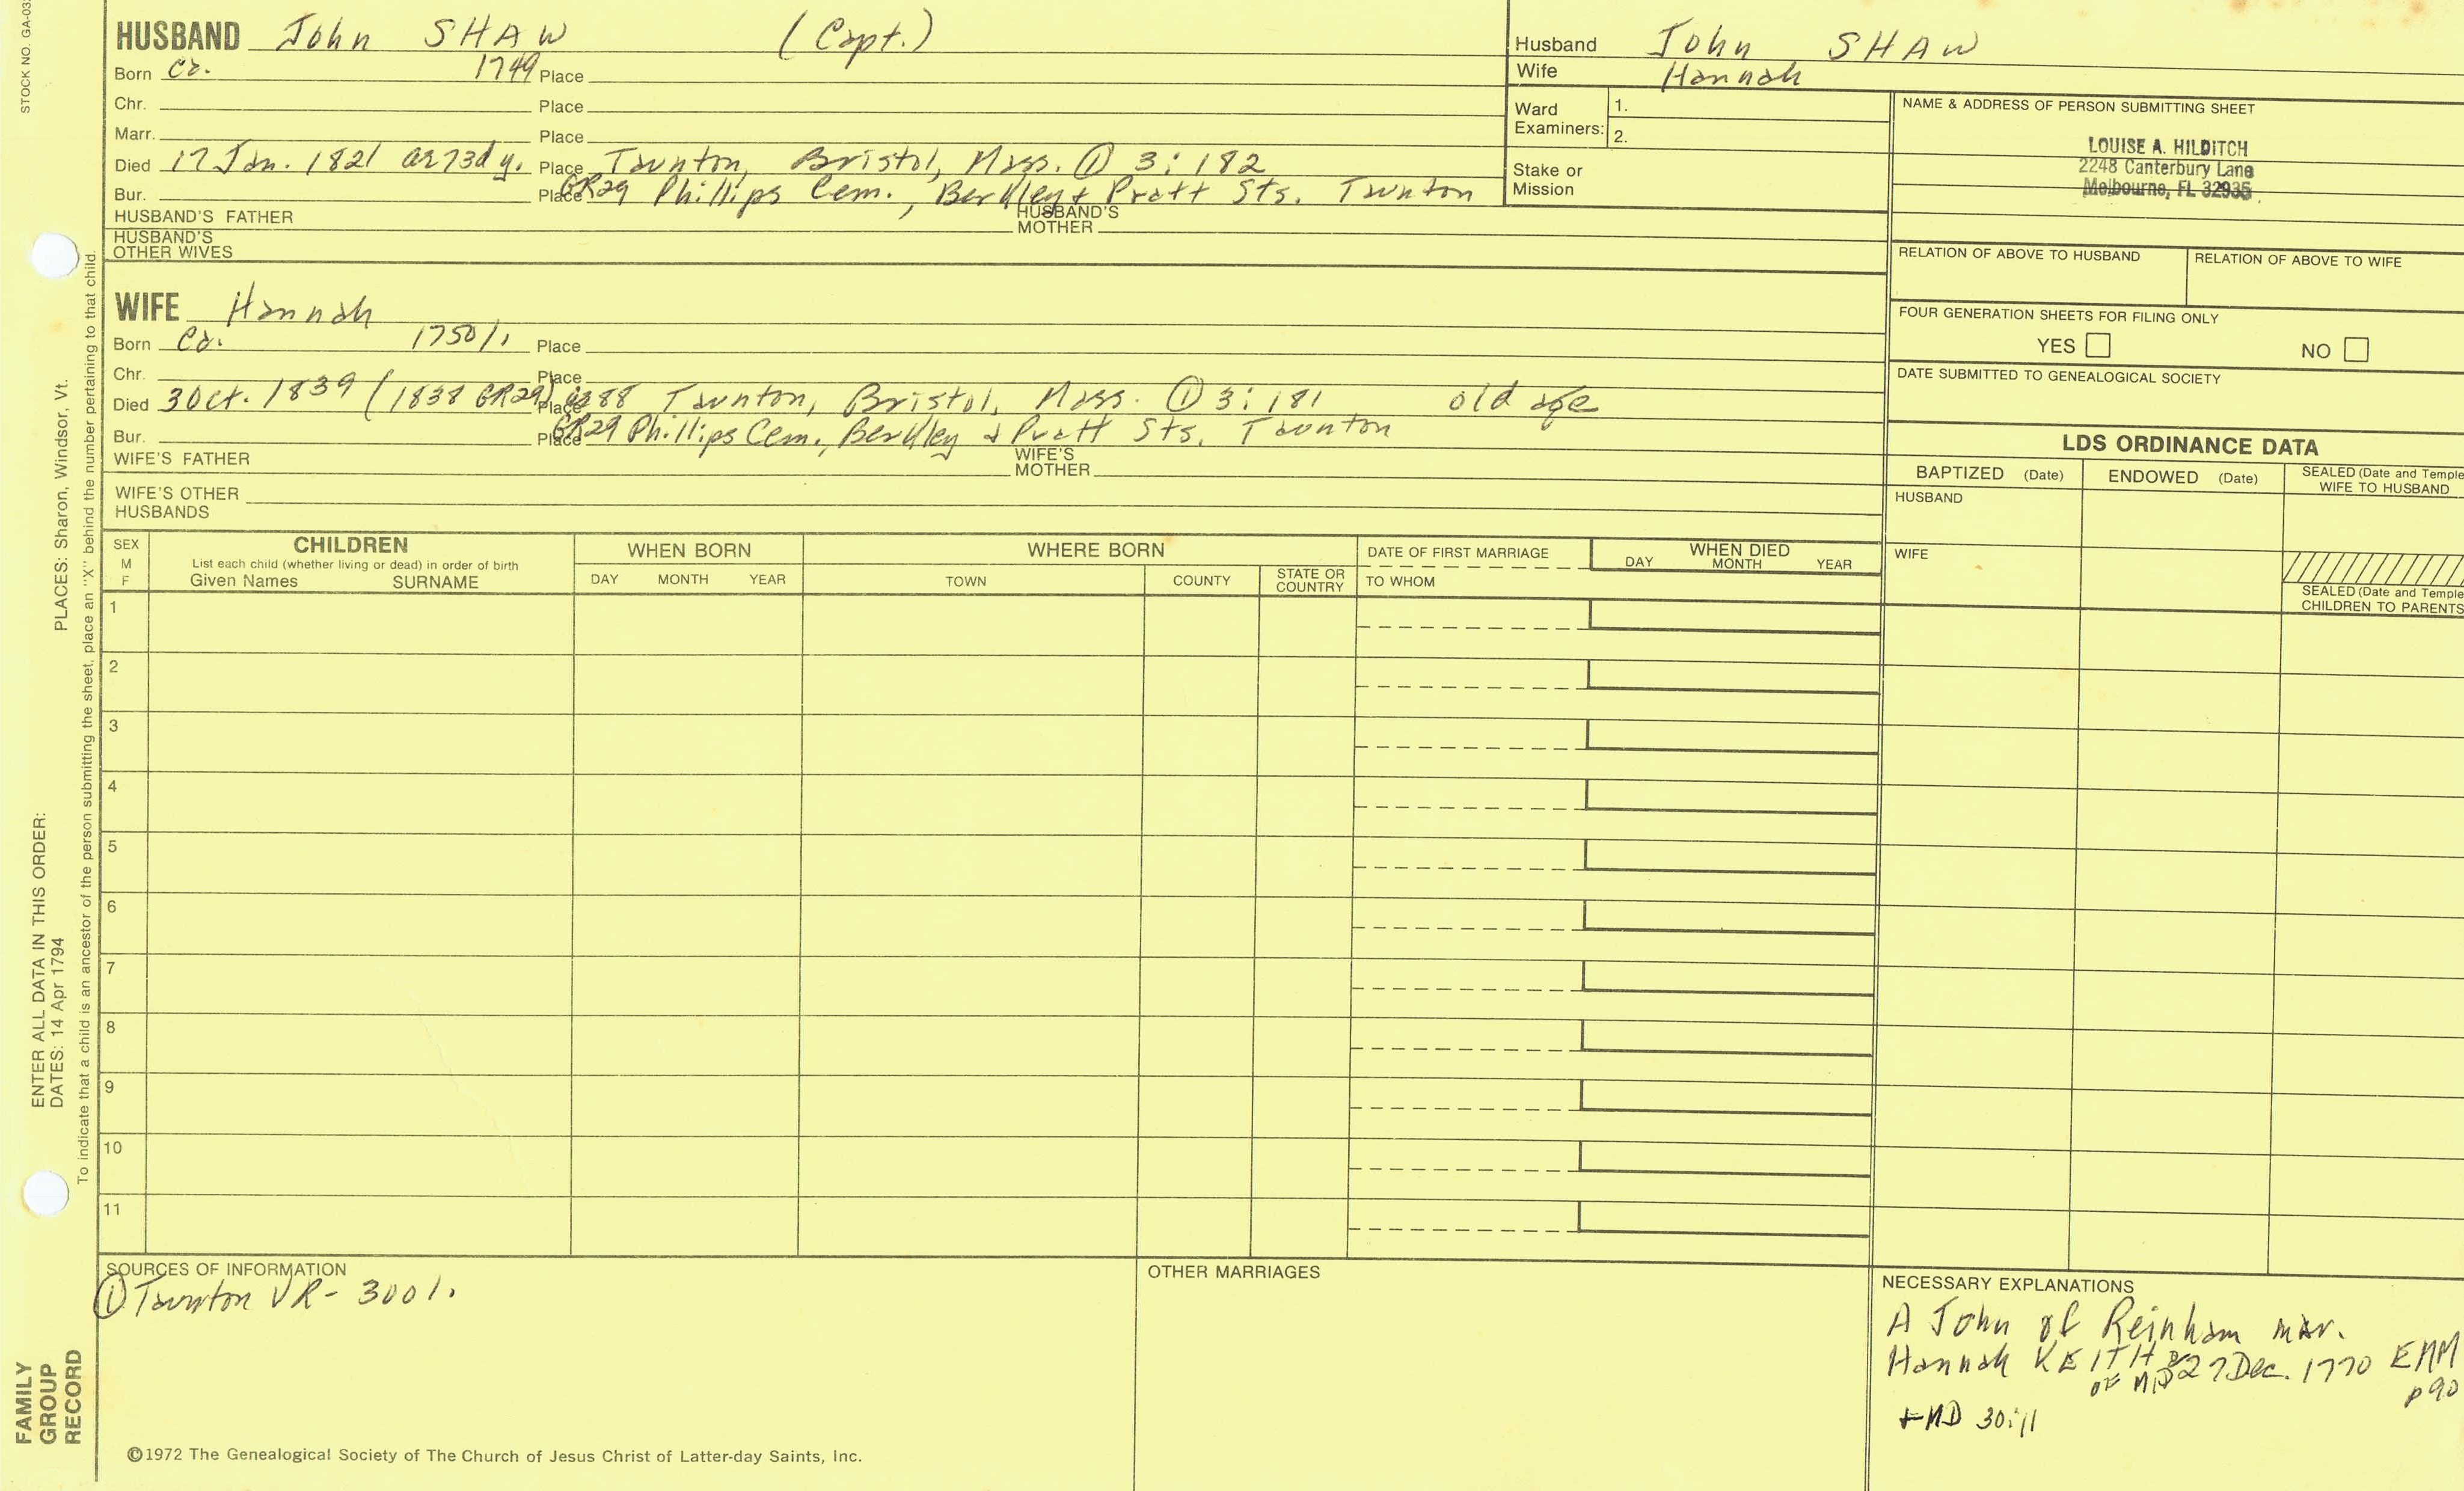 STOCK NO. GA-03
HUSBAND John SHAW (Capt.)
Born Ca. 1749 Place
Chr. Place
Marr. Place
Died 17 Jan. 1821 ae 73d y. Place Taunton, Bristol, Mass. ① 3:182
Bur. Place GR29 Phillips Cem., Berkley + Pratt Sts. Taunton
HUSBAND'S FATHER HUSBAND'S MOTHER
HUSBAND'S OTHER WIVES
WIFE Hannah
Born Ca. 1750/1 Place
Chr. Place
Died 3 Oct. 1839 (1838 GR29) ae88 Place Taunton, Bristol, Mass. ① 3:181 old age
Bur. Place GR29 Phillips Cem., Berkley + Pratt Sts. Taunton
WIFE'S FATHER WIFE'S MOTHER
WIFE'S OTHER HUSBANDS
Husband John SHAW
Wife Hannah
Ward Examiners: 1.
2.
Stake or Mission
NAME & ADDRESS OF PERSON SUBMITTING SHEET
LOUISE A. HILDITCH
2248 Canterbury Lane
Melbourne, FL 32935
RELATION OF ABOVE TO HUSBAND RELATION OF ABOVE TO WIFE
FOUR GENERATION SHEETS FOR FILING ONLY
YES NO
DATE SUBMITTED TO GENEALOGICAL SOCIETY
LDS ORDINANCE DATA
BAPTIZED (Date) ENDOWED (Date) SEALED (Date and Temple
WIFE TO HUSBAND
HUSBAND
WIFE
SEALED (Date and Temple
CHILDREN TO PARENTS
SEX M F
CHILDREN
List each child (whether living or dead) in order of birth
Given Names SURNAME
WHEN BORN
DAY MONTH YEAR
WHERE BORN
TOWN COUNTY STATE OR COUNTRY
DATE OF FIRST MARRIAGE
TO WHOM
WHEN DIED
DAY MONTH YEAR
1
2
3
4
5
6
7
8
9
10
11
SOURCES OF INFORMATION
① Taunton VR - 3001.
OTHER MARRIAGES
NECESSARY EXPLANATIONS
A John of Reinham mar.
Hannah KEITH 27 Dec. 1770 EMM
OF MID p90
+ MD 30:11
©1972 The Genealogical Society of The Church of Jesus Christ of Latter-day Saints, Inc.
ENTER ALL DATA IN THIS ORDER:
DATES: 14 Apr 1794 PLACES: Sharon, Windsor, Vt.
To indicate that a child is an ancestor of the person submitting the sheet, place an "X" behind the number pertaining to that child.
FAMILY
GROUP
RECORD